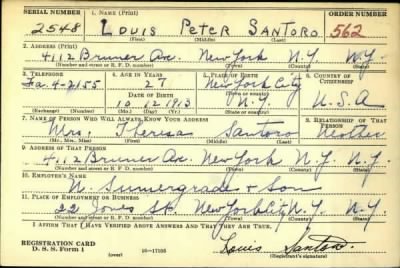 SERIAL NUMBER 1. NAME (Print) ORDER NUMBER
2548 LOUIS PETER SANTORO 562
(First) (Middle) (Last)
2. ADDRESS (Print)
4112 Bruner Ave. New York N.Y. N.Y.
(Number and street or R. F. D. number) (Town) (County) (State)
3. TELEPHONE 4. AGE IN YEARS 5. PLACE OF BIRTH 6. COUNTRY OF CITIZENSHIP
Fa. 4-2155 27 New York City
DATE OF BIRTH (Town or county)
10 12 1913 N.Y. U.S.A
(Exchange) (Number) (Mo.) (Day) (Yr.) (State or country)
7. NAME OF PERSON WHO WILL ALWAYS KNOW YOUR ADDRESS 8. RELATIONSHIP OF THAT PERSON
Mrs. Theresa Santoro Mother
(Mr., Mrs., Miss) (First) (Middle) (Last)
9. ADDRESS OF THAT PERSON
4112 Bruner Ave. New York N.Y. N.Y.
(Number and street or R. F. D. number) (Town) (County) (State)
10. EMPLOYER'S NAME
N. Sumergrade + Son
11. PLACE OF EMPLOYMENT OR BUSINESS
22 Jones St. New York City N.Y. N.Y.
(Number and street or R. F. D. number) (Town) (County) (State)
I AFFIRM THAT I HAVE VERIFIED ABOVE ANSWERS AND THAT THEY ARE TRUE.
REGISTRATION CARD
D. S. S. Form 1 (over) 16-17105 Louis Santoro
(Registrant's signature)